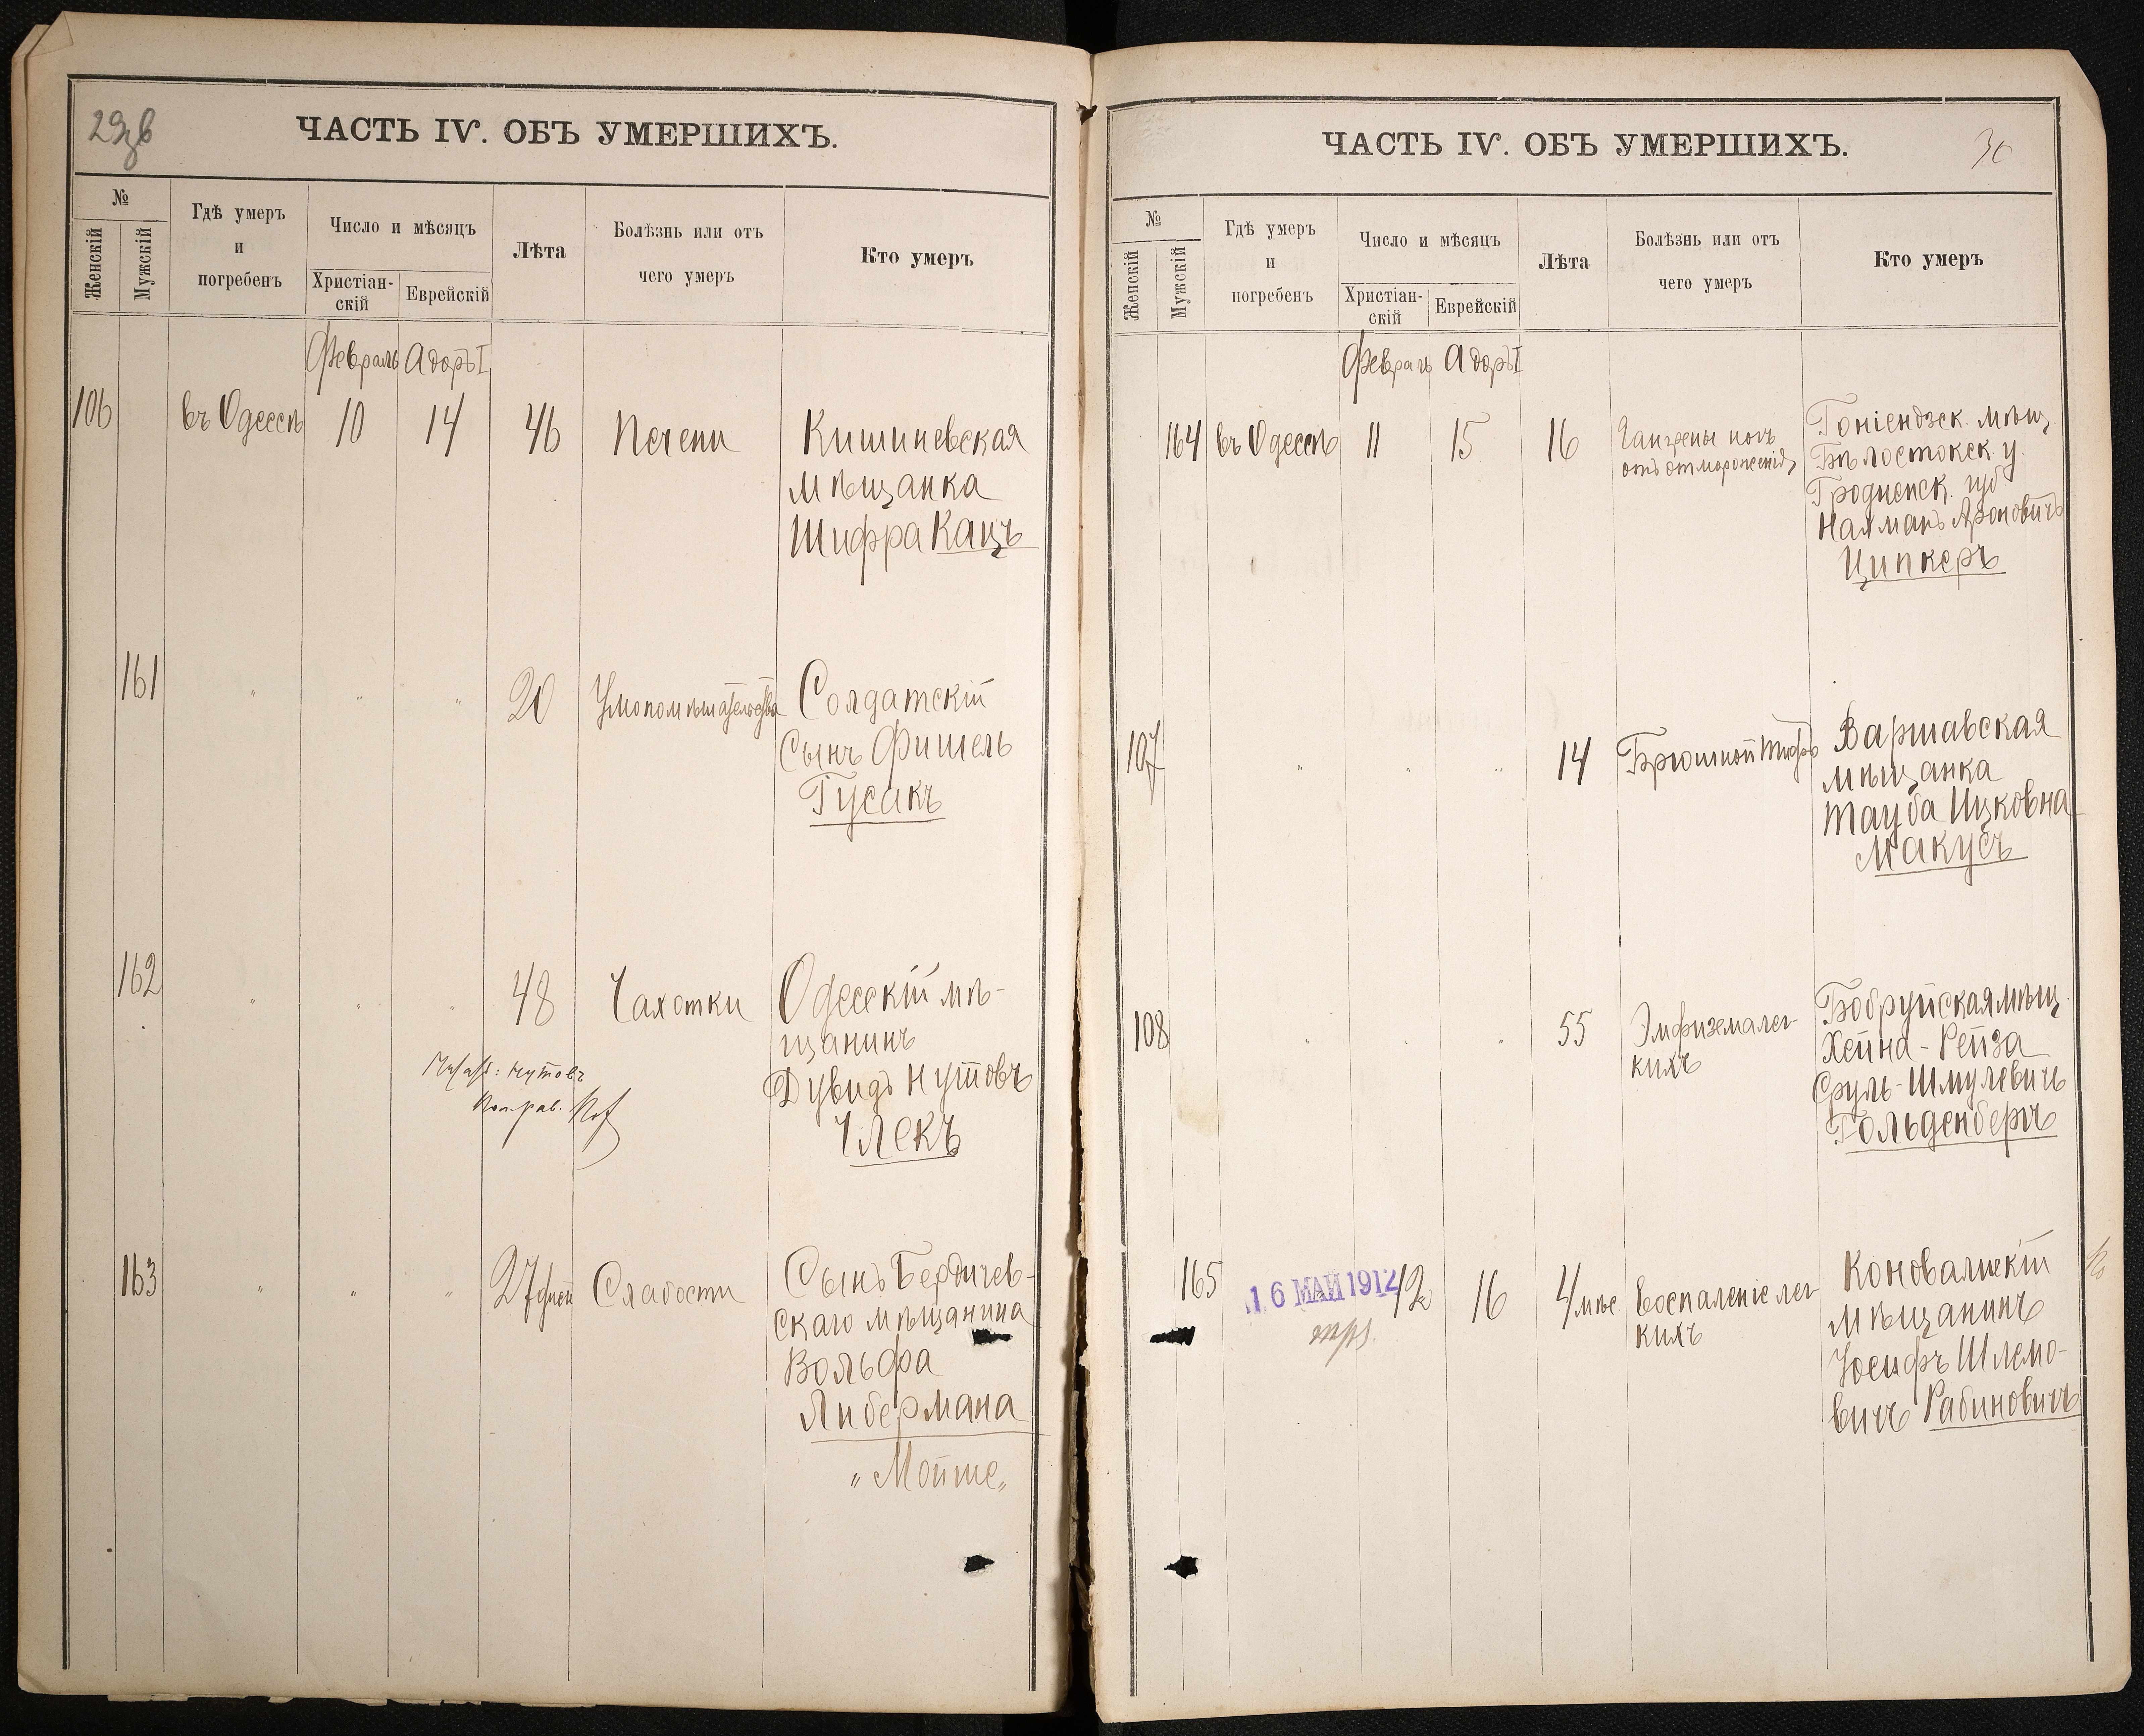 29 об
ЧАСТЬ IV. ОБЪ УМЕРШИХЪ.
№
Женскій
Мужскій
Гдѣ умеръ
и
погребенъ
Число и мѣсяцъ
Христіан-
скій
Еврейскій
Лѣта
Болѣзнь или отъ
чего умеръ
Кто умеръ
Февраль Адоръ I
106 въ Одессѣ 10 14 46 Печени Кишиневская
мѣщанка
Шифра Кацъ
161 " " " 20 Умопомѣшательства Солдатскій
Сынъ Фишель
Гусакъ
162 " " " 48 Чахотки Одесскій мѣ-
щанинъ
Дувидъ Нутовъ
Члекъ
Нутовъ
163 " " " 27 дней Слабости Сынъ Бердичев-
скаго мѣщанина
Вольфа
Либермана
"Мойше"
ЧАСТЬ IV. ОБЪ УМЕРШИХЪ.
30
№
Женскій
Мужскій
Гдѣ умеръ
и
погребенъ
Число и мѣсяцъ
Христіан-
скій
Еврейскій
Лѣта
Болѣзнь или отъ
чего умеръ
Кто умеръ
Февраль Адоръ I
164 въ Одессѣ 11 15 16 Гангрены ногъ Гоніендзск. мѣщ.
отъ отмороженія Бѣлостокск. у.
Гродненск. губ
Нахманъ Ароновичъ
Ципкеръ
107 " " " 14 Брюшной тифъ Варшавская
мѣщанка
Тауба Ицковна
Макусъ
108 " " " 55 Эмфизема лег- Бобруйская мѣщ.
кихъ Хейна-Рейза
Сруль-Шмулевичъ
Гольденбергъ
165 16 МАЙ 1912 12 16 4 мѣс. Воспаленіе лег- Коновалискій
кихъ мѣщанинъ
Іосифъ Шлемо-
вичъ Рабиновичъ